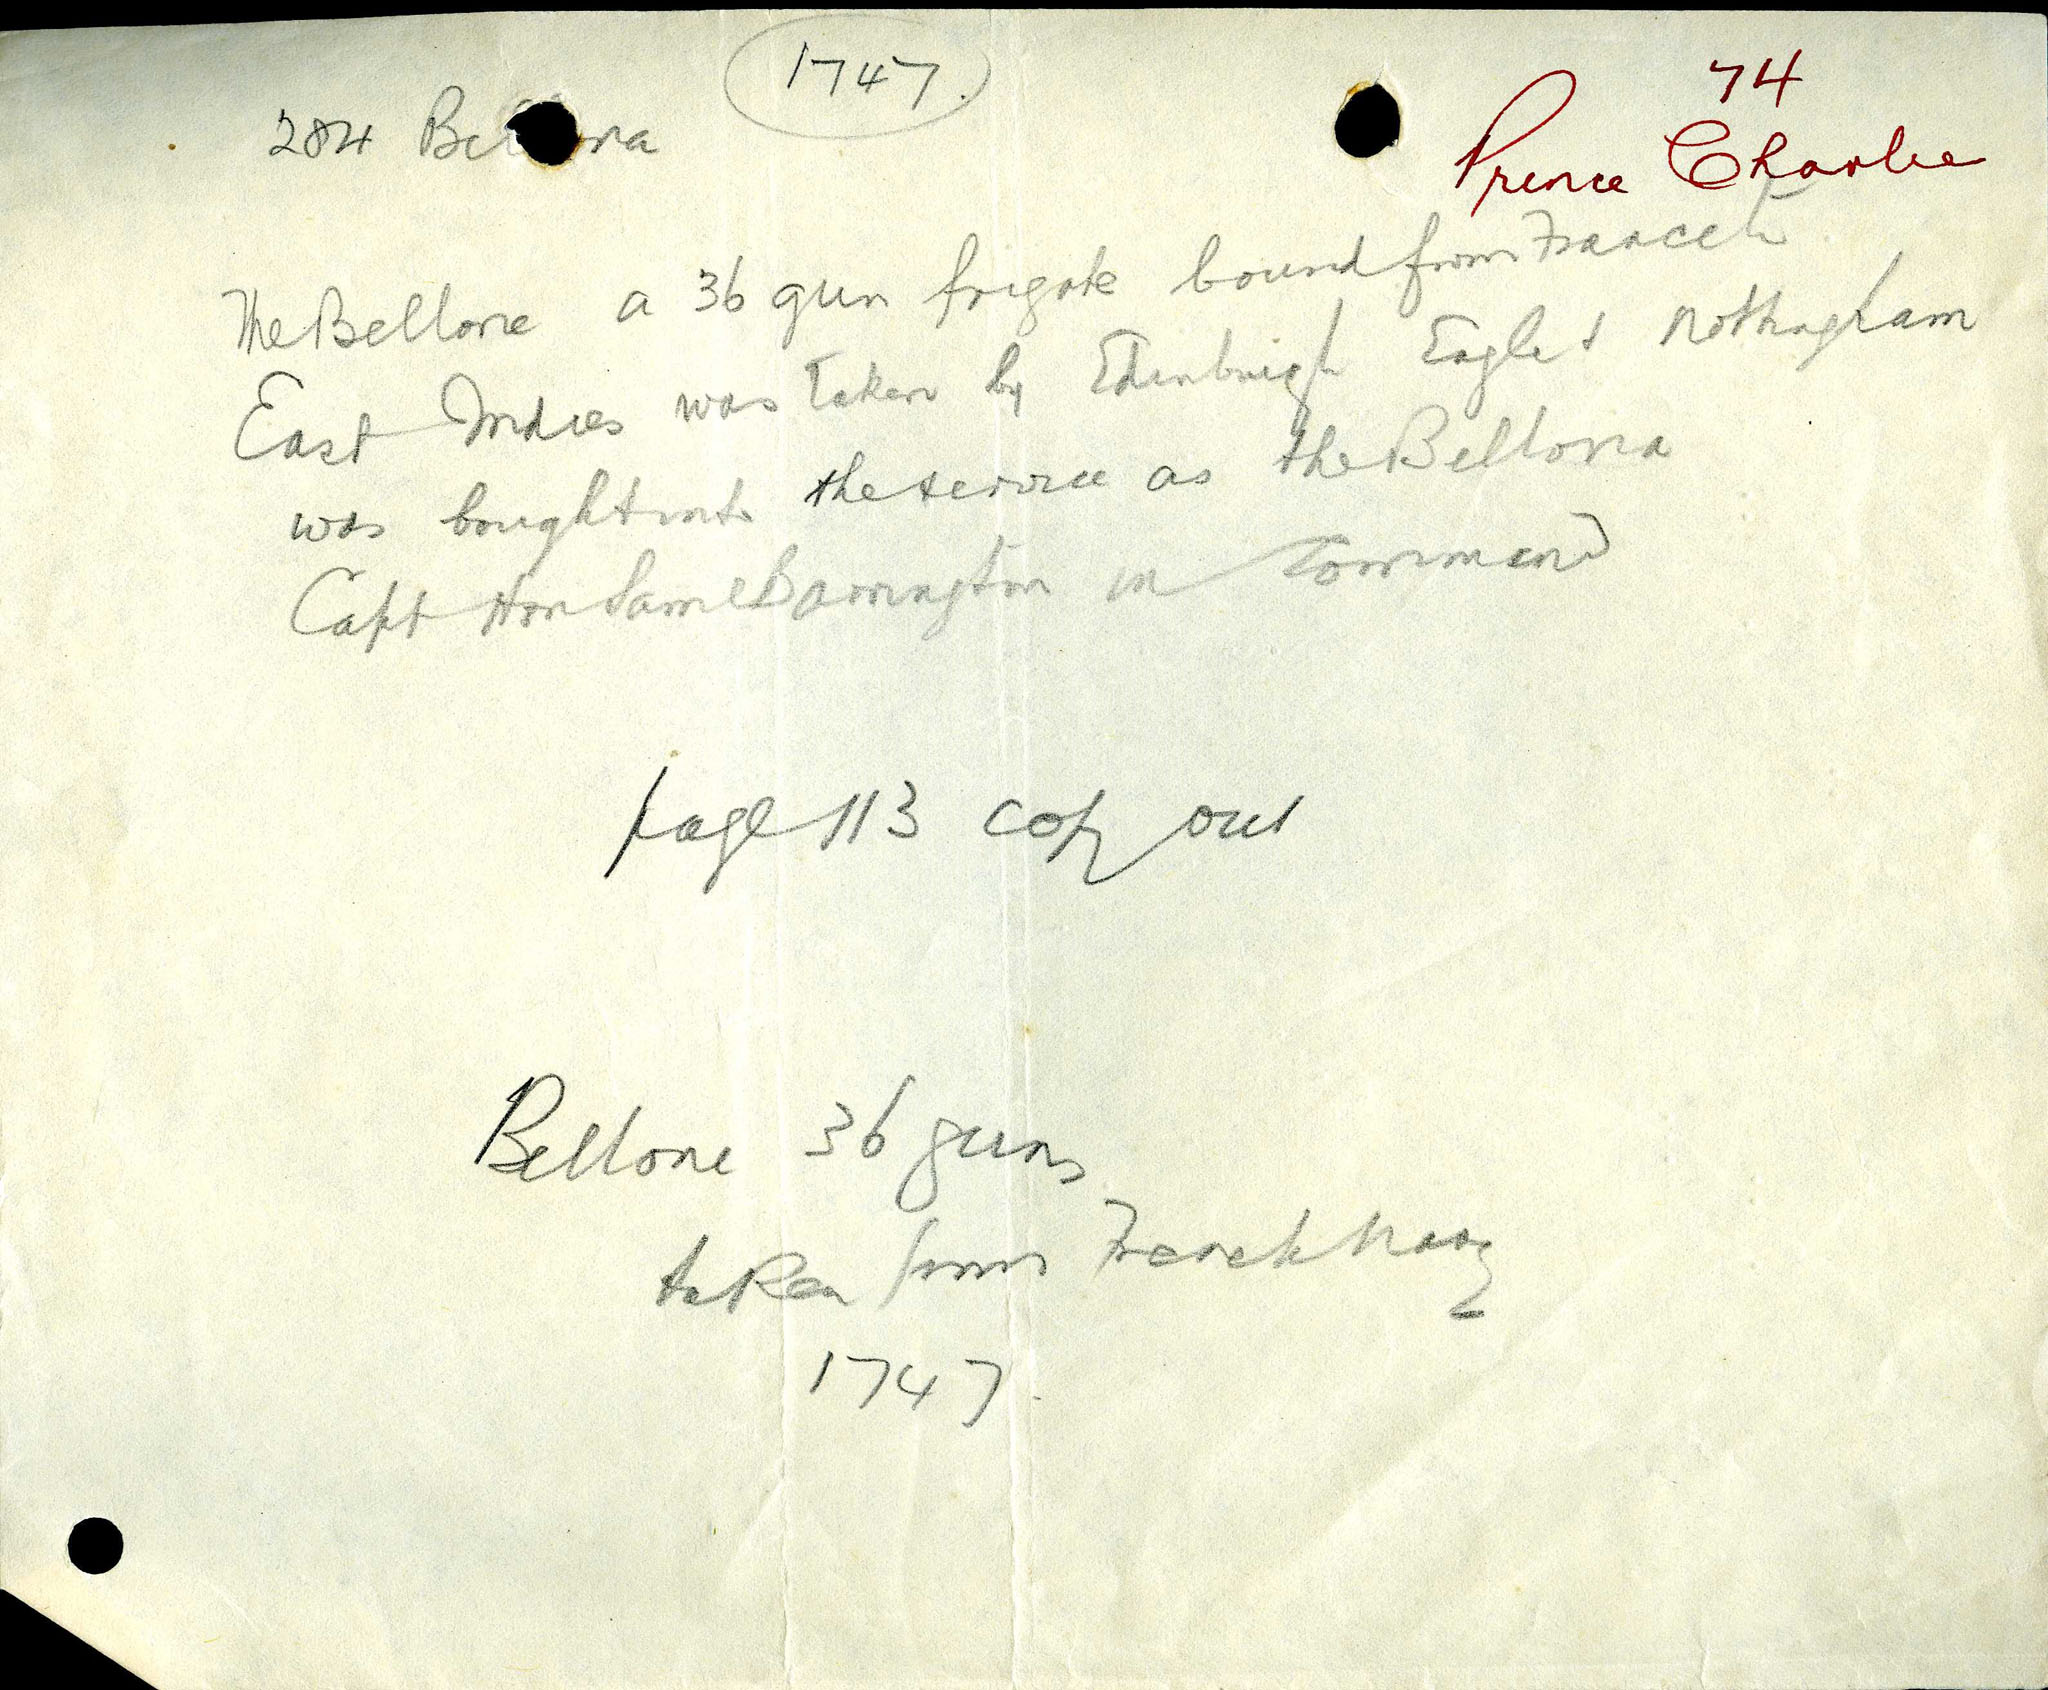 1747.
74
284 Bellona
Prince Charlie
The Bellone a 36 gun frigate bound from France to
East Indies was taken by Edinburgh Eagle & Nottingham
was bought into the service as the Bellona
Capt Hon Saml Barrington in Command
page 113 copy out
Bellone 36 guns
taken from French Navy
1747.